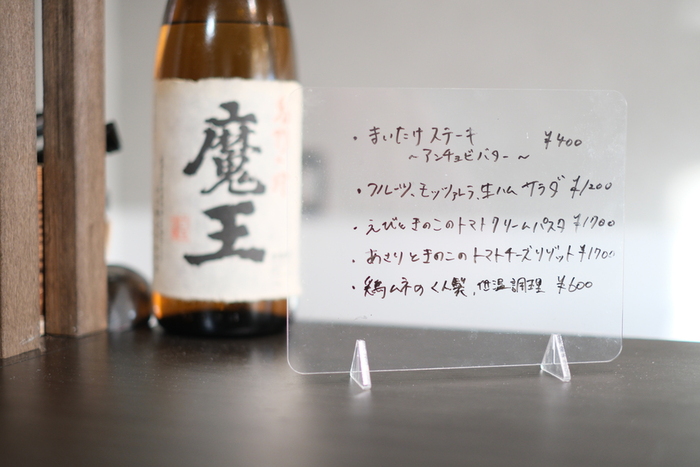 魔王
・まいたけステーキ ¥400
～アンチョビバター～
・フルーツ、モッツァレラ、生ハム サラダ ¥1200
・えびときのこのトマトクリームパスタ ¥1700
・あさりときのこのトマトチーズリゾット ¥1700
・鶏ムネのくん製、低温調理 ¥600